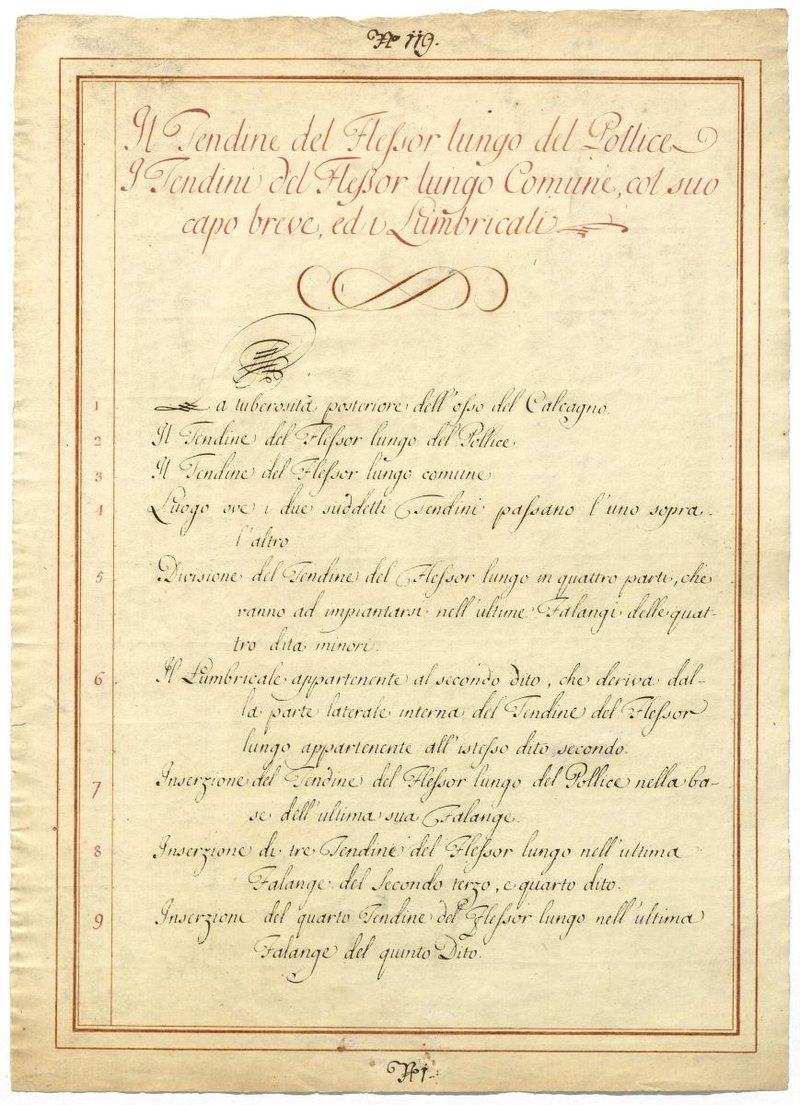 Nº 119.
Il Tendine del Flessor lungo del Pollice
I Tendini del Flessor lungo Comune, col suo
capo breve, ed i Lumbricali
1 La tuberosità posteriore dell'osso del Calcagno.
2 Il Tendine del Flessor lungo del Pollice
3 Il Tendine del Flessor lungo comune
4 Luogo ove i due suddetti Tendini passano l'uno sopra
l'altro
5 Divisione del Tendine del Flessor lungo in quattro parti, che
vanno ad impiantarsi nell'ultime Falangi delle quat-
tro dita minori.
6 Il Lumbricale appartenente al secondo dito, che deriva dal-
la parte laterale interna del Tendine del Flessor
lungo appartenente all'istesso dito secondo.
7 Inserzione del Tendine del Flessor lungo del Pollice nella ba-
se dell'ultima sua Falange.
8 Inserzione di tre Tendini del Flessor lungo nell'ultima
Falange del Secondo terzo, e quarto dito.
9 Inserzione del quarto Tendine del Flessor lungo nell'ultima
Falange del quinto Dito.
Nº 1.